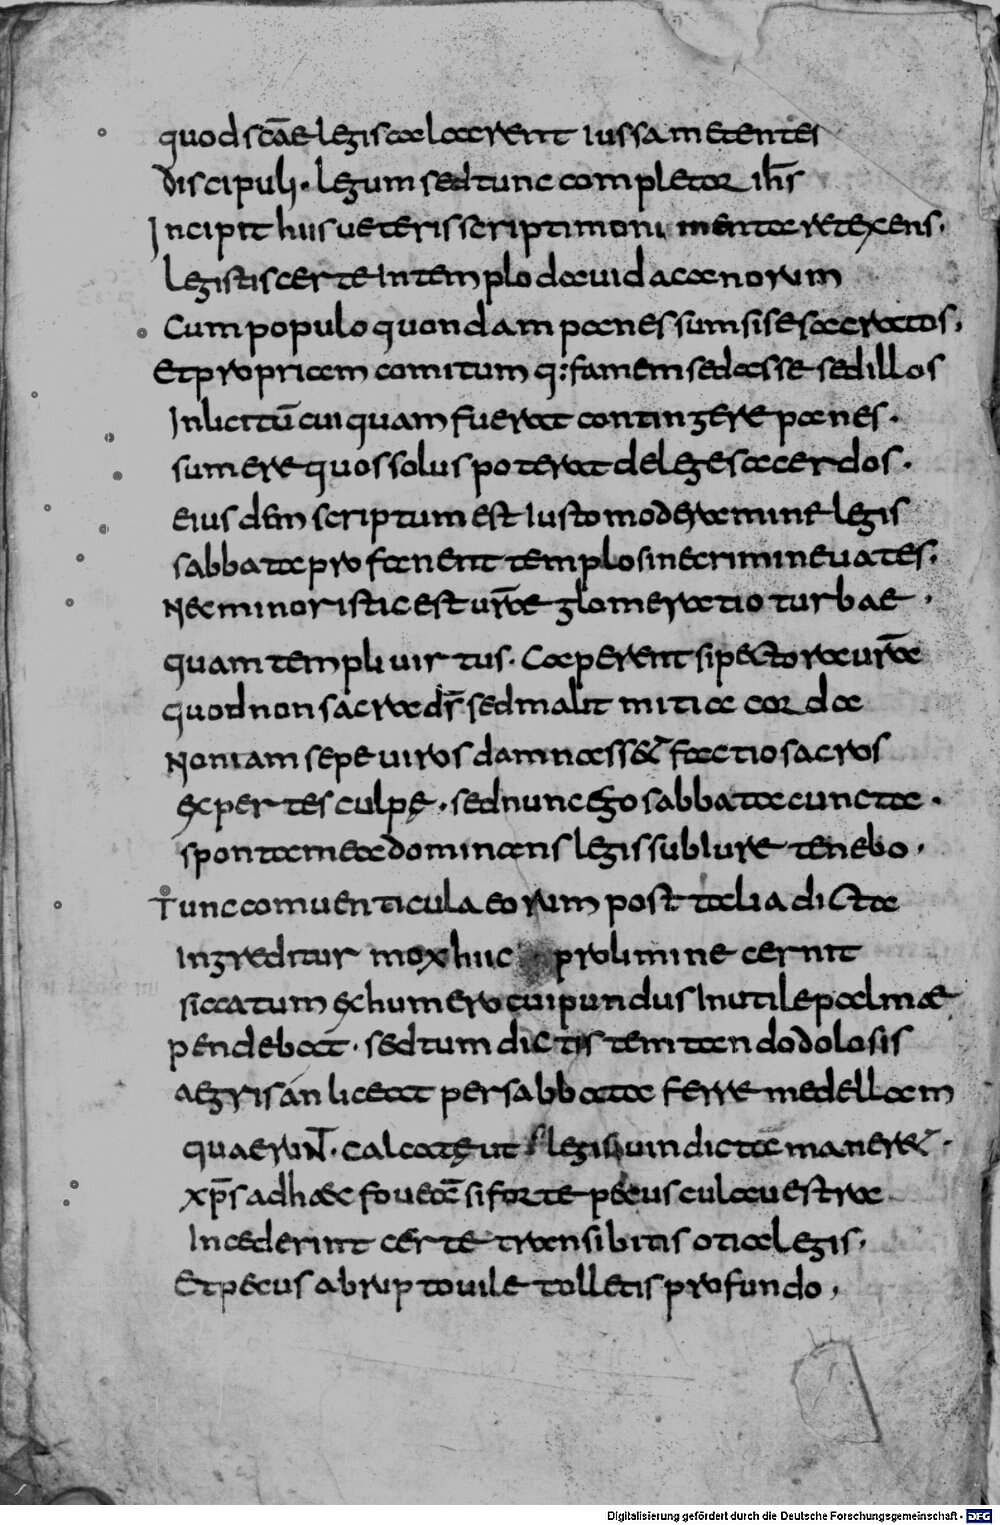 quod sc̄ae legis celerent iussa metentes
Discipuli. legum sed tunc completor ih̄s
Incipit huis ueteris scripti moni menta retexens.
Legistis certe In templo dauid acanorum
Cum populo quondam panes sumsise sacratos,
Et propriam comitum q: famem sedasse sed illos
Inlicitū cuiquam fuerat contingere panes.
sumere quos solus poterat de lege sacerdos.
eius dem scriptum est Iusto moderamine legis
sabbata profanent templo sine crimine uates.
Nec minor istic est ur̄ae glomeratio turbae,
quam templi uirtus. Caperent si pectora ur̄a
quod non sacra dr̄ sed malit mitia corda
Non iam sepe uiros damnass& factio sacros
ęcpertes culpę. sed nunc ego sabbata cuncta.
sponta mea dominans legis sub Iure tenebo,
Tunc comuenticula eorum post talia dicta
Ingreditur mox huic pro limine cernit
siccatum ęc humero cui pundus Inutile palmae
pendebat. sed tum dictis temtando dolosis
aegris an liceat per sabbata ferre medellam
quaeruNT. calcatę ut legis uindicta maner&.
xp̄s ad haec fouea si forte pecuscula uestra
Incederint certe transibitis otia legis,
Et pecus abrupto uile tolletis profundo,
Digitalisierung gefördert durch die Deutsche Forschungsgemeinschaft - DFG